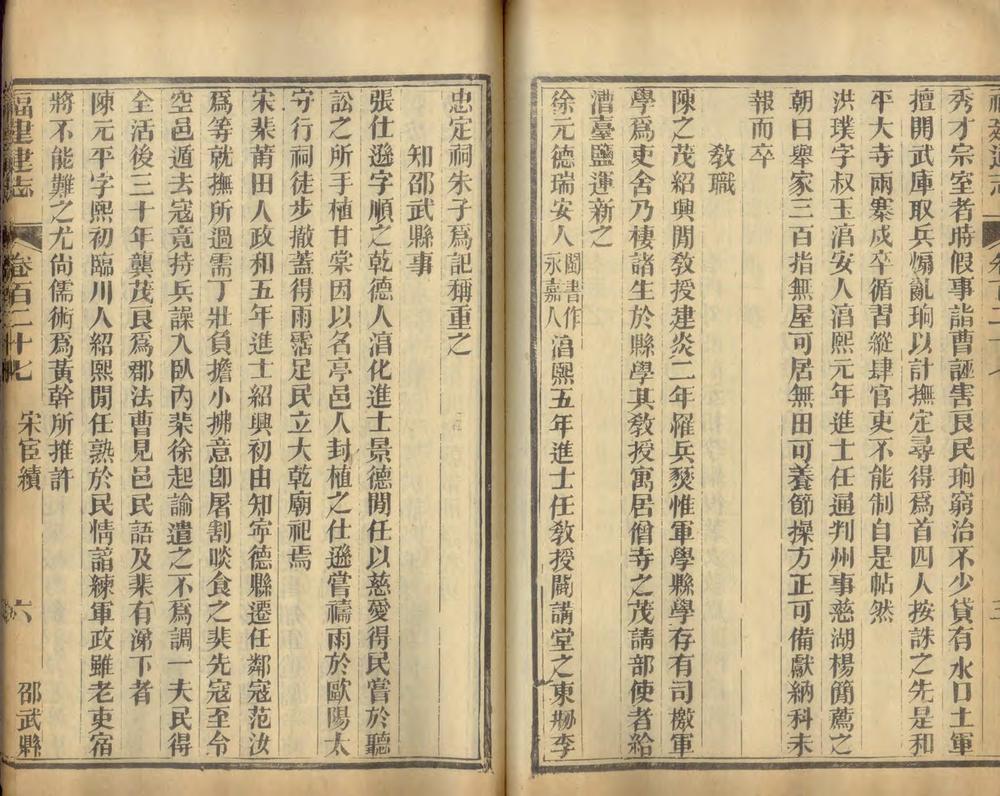 秀才宗室者時假事詣曹誣害良民珦窮治不少貸有水口土軍
擅開武庫取兵煽亂珦以計撫定尋得爲首四人按誅之先是和
平大寺兩寨戍卒循習縱肆官吏不能制自是帖然
洪璞字叔玉湻安人湻熙元年進士任通判州事慈湖楊簡薦之
朝曰舉家三百指無屋可居無田可養節操方正可備獻納科未
報而卒
敎職
陳之茂紹興閒敎授建炎二年罹兵燹惟軍學縣學存有司檄軍
學爲吏舍乃棲諸生於縣學其敎授寓居僧寺之茂請部使者給
漕臺鹽運新之
徐元德瑞安人閩書作永嘉人湻熙五年進士任敎授闢講堂之東剏李
忠定祠朱子爲記稱重之
知邵武縣事
張仕遜字順之乾德人湻化進士景德閒任以慈愛得民嘗於聽
訟之所手植甘棠因以名亭邑人封植之仕遜嘗禱雨於歐陽太
守行祠徒步撤蓋得雨霑足民立大乾廟祀焉
宋棐莆田人政和五年進士紹興初由知寧德縣遷任鄰寇范汝
爲等就撫所過需丁壯負擔小拂意卽屠割啖食之棐先寇至令
空邑遁去寇竟持兵譟入臥內棐徐起諭遣之不爲調一夫民得
全活後三十年龔茂良爲郡法曹見邑民語及棐有涕下者
陳元平字熙初臨川人紹熙閒任熟於民情諳練軍政雖老吏宿
將不能難之尤尙儒術爲黃幹所推許
福建通志
卷百二十七
宋宦績
六
邵武縣